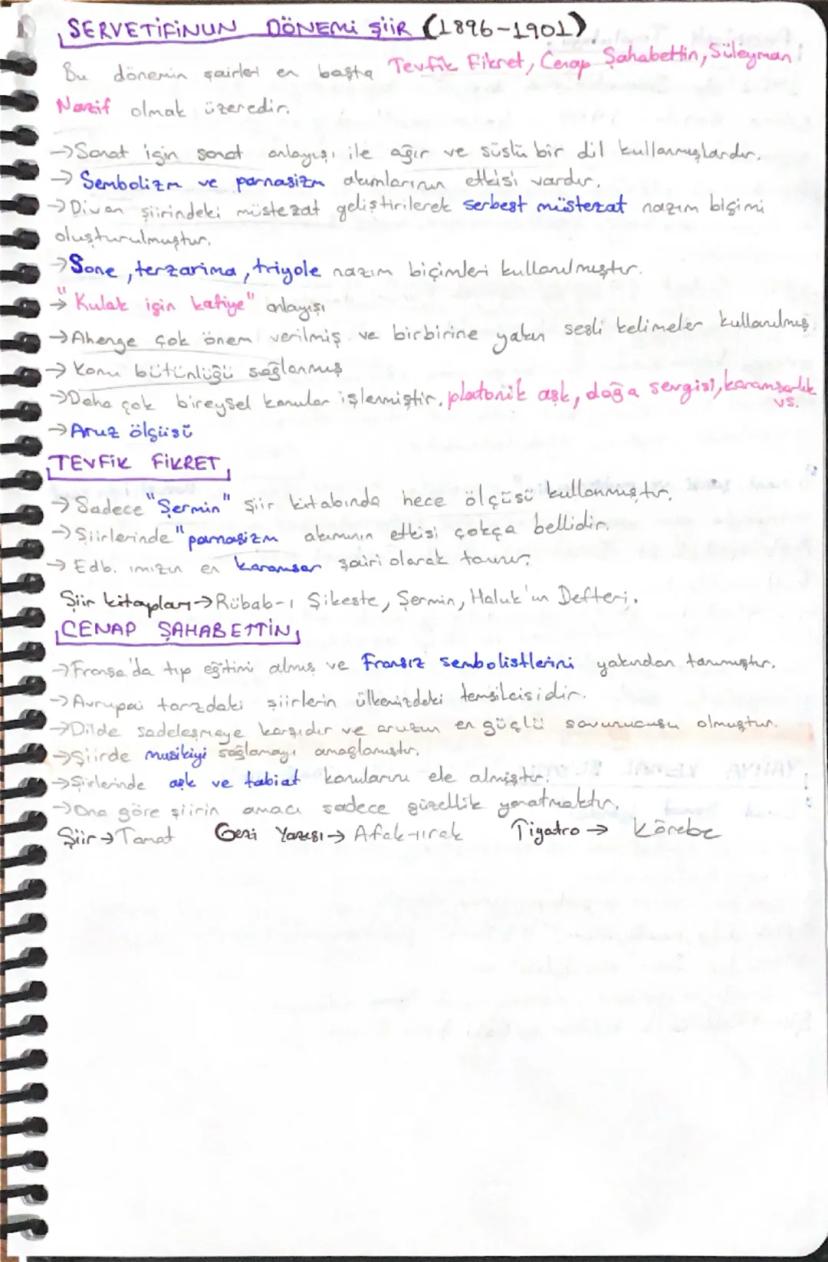 SERVETİFİNUN DÖNEMİ ŞİİR (1896-1901)
Bu dönemin şairleri en başta Tevfik Fikret, Cenap Şahabettin, Süleyman
Nazif olmak üzeredir.
→Sanat için sanat anlayışı ile ağır ve süslü bir dil kullanmışlardır.
→Sembolizm ve parnasizm akımlarının etkisi vardır.
→Divan şiirindeki müstezat geliştirilerek serbest müstezat nazım biçimi
oluşturulmuştur.
→Sone, terzarima, triyole nazım biçimleri kullanılmıştır.
→"Kulak için kafiye" anlayışı
→Ahenge çok önem verilmiş ve birbirine yakın sesli kelimeler kullanılmış
→Konu bütünlüğü sağlanmış
→Daha çok bireysel konular işlenmiştir. platonik aşk, doğa sevgisi, karamsarlık
vs.
→Aruz ölçüsü
TEVFİK FİKRET
→Sadece "Şermin" şiir kitabında hece ölçüsü kullanmıştır.
→Şiirlerinde "parnasizm akımının etkisi çokça bellidir.
→Edb. ımızın en karamsar şairi olarak tanınır.
Şiir kitapları→Rübab-ı Şikeste, Şermin, Haluk'un Defteri.
CENAP ŞAHABETTİN
→Fransa'da tıp eğitimi almış ve Fransız sembolistlerini yakından tanımıştır.
→Avrupai tarzdaki şiirlerin ülkemizdeki temsilcisidir.
→Dilde sadeleşmeye karşıdır ve aruzun en güçlü savunucusu olmuştur.
→Şiirde musikiyi sağlamayı amaçlamıştır.
→Şirlerinde aşk ve tabiat konularını ele almıştır.
→Ona göre şiirin amacı sadece güzellik yaratmaktır.
Şiir→Tamat Gezi Yazısı→Afak-ıırak Tiyatro→ Körebe